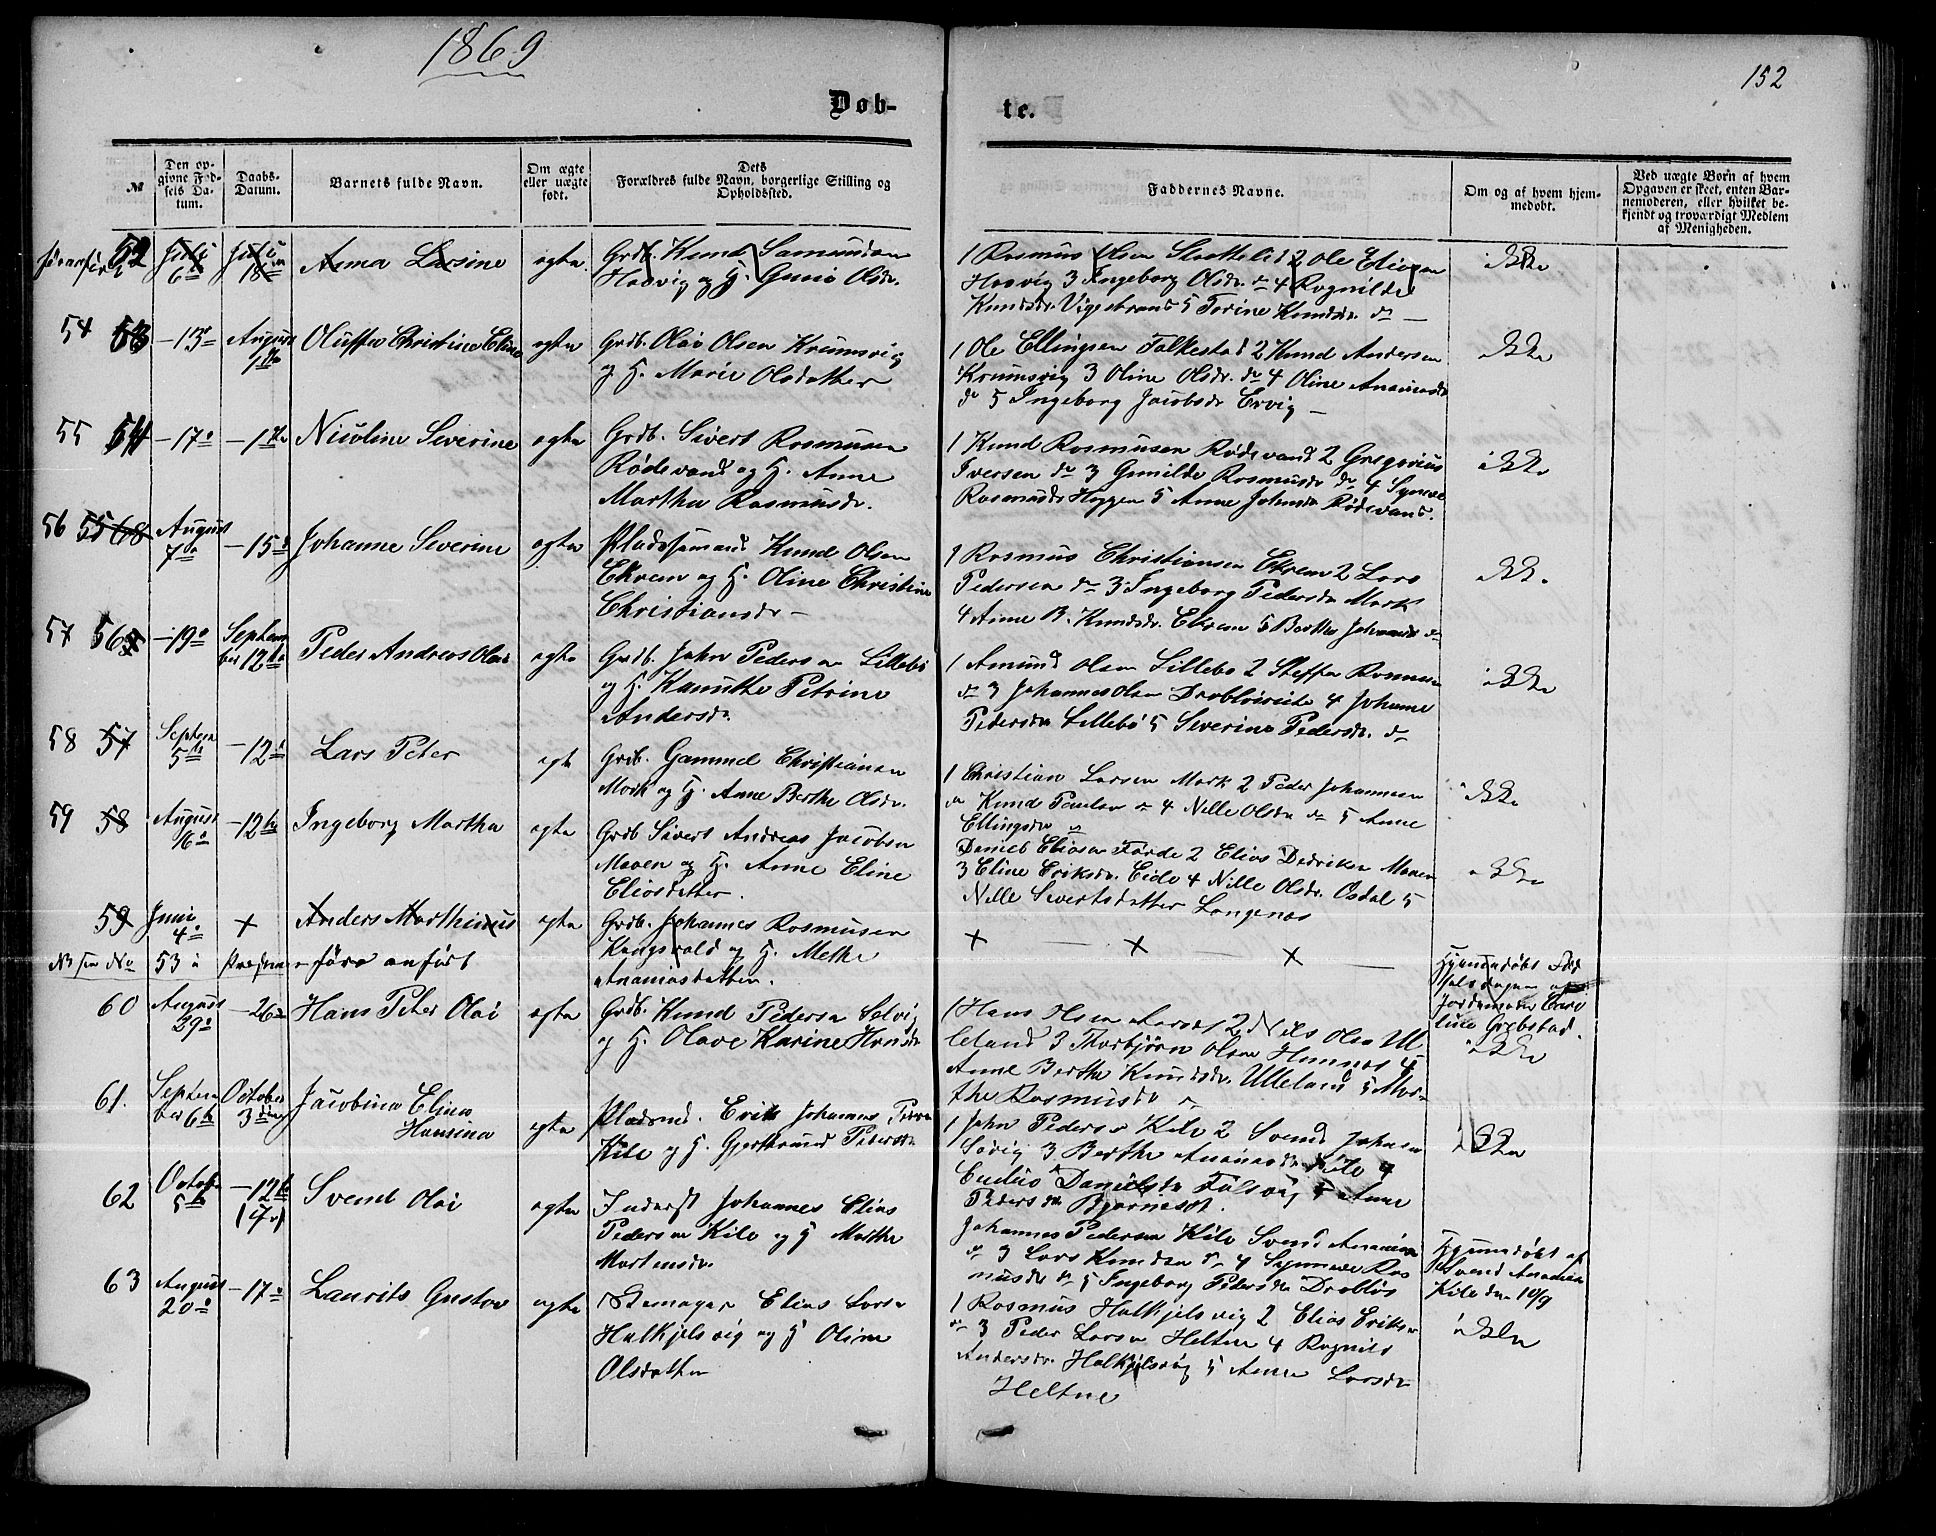 1869
152
Døb-
te.
№
Den op-
givne Fød-
sels Da-
tum.
Daabs-
Datum.
Barnets fulde Navn.
Om ægte
eller uægte
født.
Dets
Forældres fulde Navn, borgerlige Stilling og
Opholdssted.
Faddernes Navne.
Om og af hvem hjem-
medøbt.
Ved uægte Børn af hvem
Opgaven er skeet, enten Bar-
nemoderen, eller hvilket be-
kjendt og troværdigt Medlem
af Menigheden.
52
Juli
6
Juli
18
Anna Larsine
ægte
Grdb. Knud Samundsen
Haavig og H. Guri Olsdr.
1 Rasmus Olsen Slettelid 2 Ole Eliesen
Haavig 3 Ingeborg Olsdr. do 4 Ragnilde
Knudsdr. Vigestrand 5 Torine Knudsdr. do
ikke
54 53
-13de
August
1ste
Oluffa Christine Eline
ægte
Grdb. Olai Olsen Krumsvig
og H. Marie Olsdatter
1 Ole Ellingsen Falkestad 2 Knud Andersen
Krumsvig 3 Oline Olsdr. do 4 Oline Ananiasdr
do 5 Ingeborg Jacobsdr Ervig
ikke
55 54
-17de
-1ste
Nicoline Severine
ægte
Grdb. Sivert Rasmussen
Rødsvand og H. Anne
Martha Rasmusdr.
1 Knud Rasmussen Rødsvand 2 Gregorius
Iversen do 3 Gunilde Rasmusdr do 4 Synneve
Rasmusdr Hoggen 5 Anne Johnsdr Rødsvand.
ikke
56 55 68
August
7de
-15de
Johanne Severine
ægte
Pladsmand Knud Olsen
Ekrem og H. Oline Christine
Christiansdr
1 Rasmus Christiansen Ekrem 2 Lars
Pedersen do 3 Ingeborg Pedersdr Mork
4 Anne B. Knudsdr. Ekrem 5 Berthe Johansdr do
ikke
57 56
-19de
Septem
ber 12te
Peder Andreas Olai
ægte
Grdb. John Pedersen Lillebø
og H. Kanutte Petrine
Andersdr
1 Amund Olsen Lillebø 2 Steffen Rasmussen
do 3 Johannes Olsen 4 Johanne
Pedersdr Lillebø 5 Severine Pedersdr. do
ikke
58 57
Septem
5te
-12te
Lars Peter
ægte
Grdb. Gammel Christiansen
Mork og H. Anne Berthe Olsdr.
1 Christian Larsen Mork 2 Peder Johannesen
do Knud Paulsen do 4 Nille Olsdr do 5 Anne
Ellingsdr do
ikke
59 58
August
16de
-12te
Ingeborg Martha
ægte
Grdb Sivert Andreas Jacobsen
Maven og H. Anne Eline
Eliasdatter.
Daniel Eliasen Førde 2 Elias Dedriksen Maven
3 Eline Eriksdr. Eide 4 Nille Olsdr. Osdal 5
Nille Sivertsdatter Langenæs
ikke
59
Juni
4de
+
Anders Marthinus
ægte
Grdb. Johannes Rasmussen
Kongsvold og H. Mette
Ananiasdatter.
+ — + — + —
Hjemmedøbt Fød
selsdagen af
Jordemoder
Grebstad.
53
føranført
60
August
29de
-26de
Hans Peter Olai
ægte
Grdb. Knud Pedersen Selvig
og H. Olave Karine Hansdr
1 Hans Olsen Aarset 2 Nils Olsen Ul
leland 3 Thorbjørn Olsen Humnes 4
Anne Berthe Knudsdr. Ulleland 5 Mar
the Rasmusdr do
ikke
61.
Septem
ber 6te
October
3die
Jacobine Eline
Hansine
ægte
Pladsmd. Erik Johannes Peders
Kile og H. Gjertrud Pedersdr
1 John Pedersen Kile 2 Svend Johnsen
Søvig 3 Berthe Ananiasdr Kile 4
Danielsdr Falsvig 5 Anne
Pedersdr Bjørneset.
ikke
62
October
5te
-12te
(17de)
Svend Olai
ægte
Inderst Johannes Elias
Pedersen Kile og H Marthe
Mortensdr.
Johannes Pedersen Kile Svend Ananias
do 3 Lars Knudsen do 4 Synneve Ras
musdr do 5 Ingeborg Pedersdr
Hjemmedøbt af
Svend Ananias
Kile den 10/9
63
August
20de
-17de
Laurits Gustav
ægte
Elias Larsen
Halkjelsvig og H Oline
Olsdatter
1 Rasmus Halkjelsvig 2 Elias Eriksen
do 3 Peder Larsen Heltne 4 Ragnild
Andersdr. Halkjelsvig 5 Anne Larsdr
Heltne
ikke